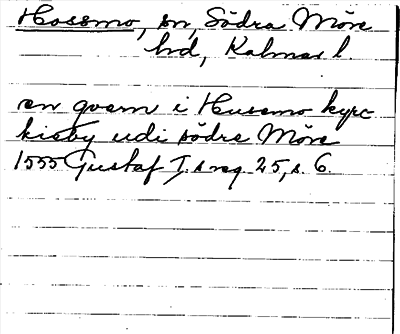 Hossmo, sn, Södra Möre
hd, Kalmar l.
en qvarn i Hussmo kyrc
kieby udi södre Möre
1555 Gustaf I:s reg 25, s. 6.